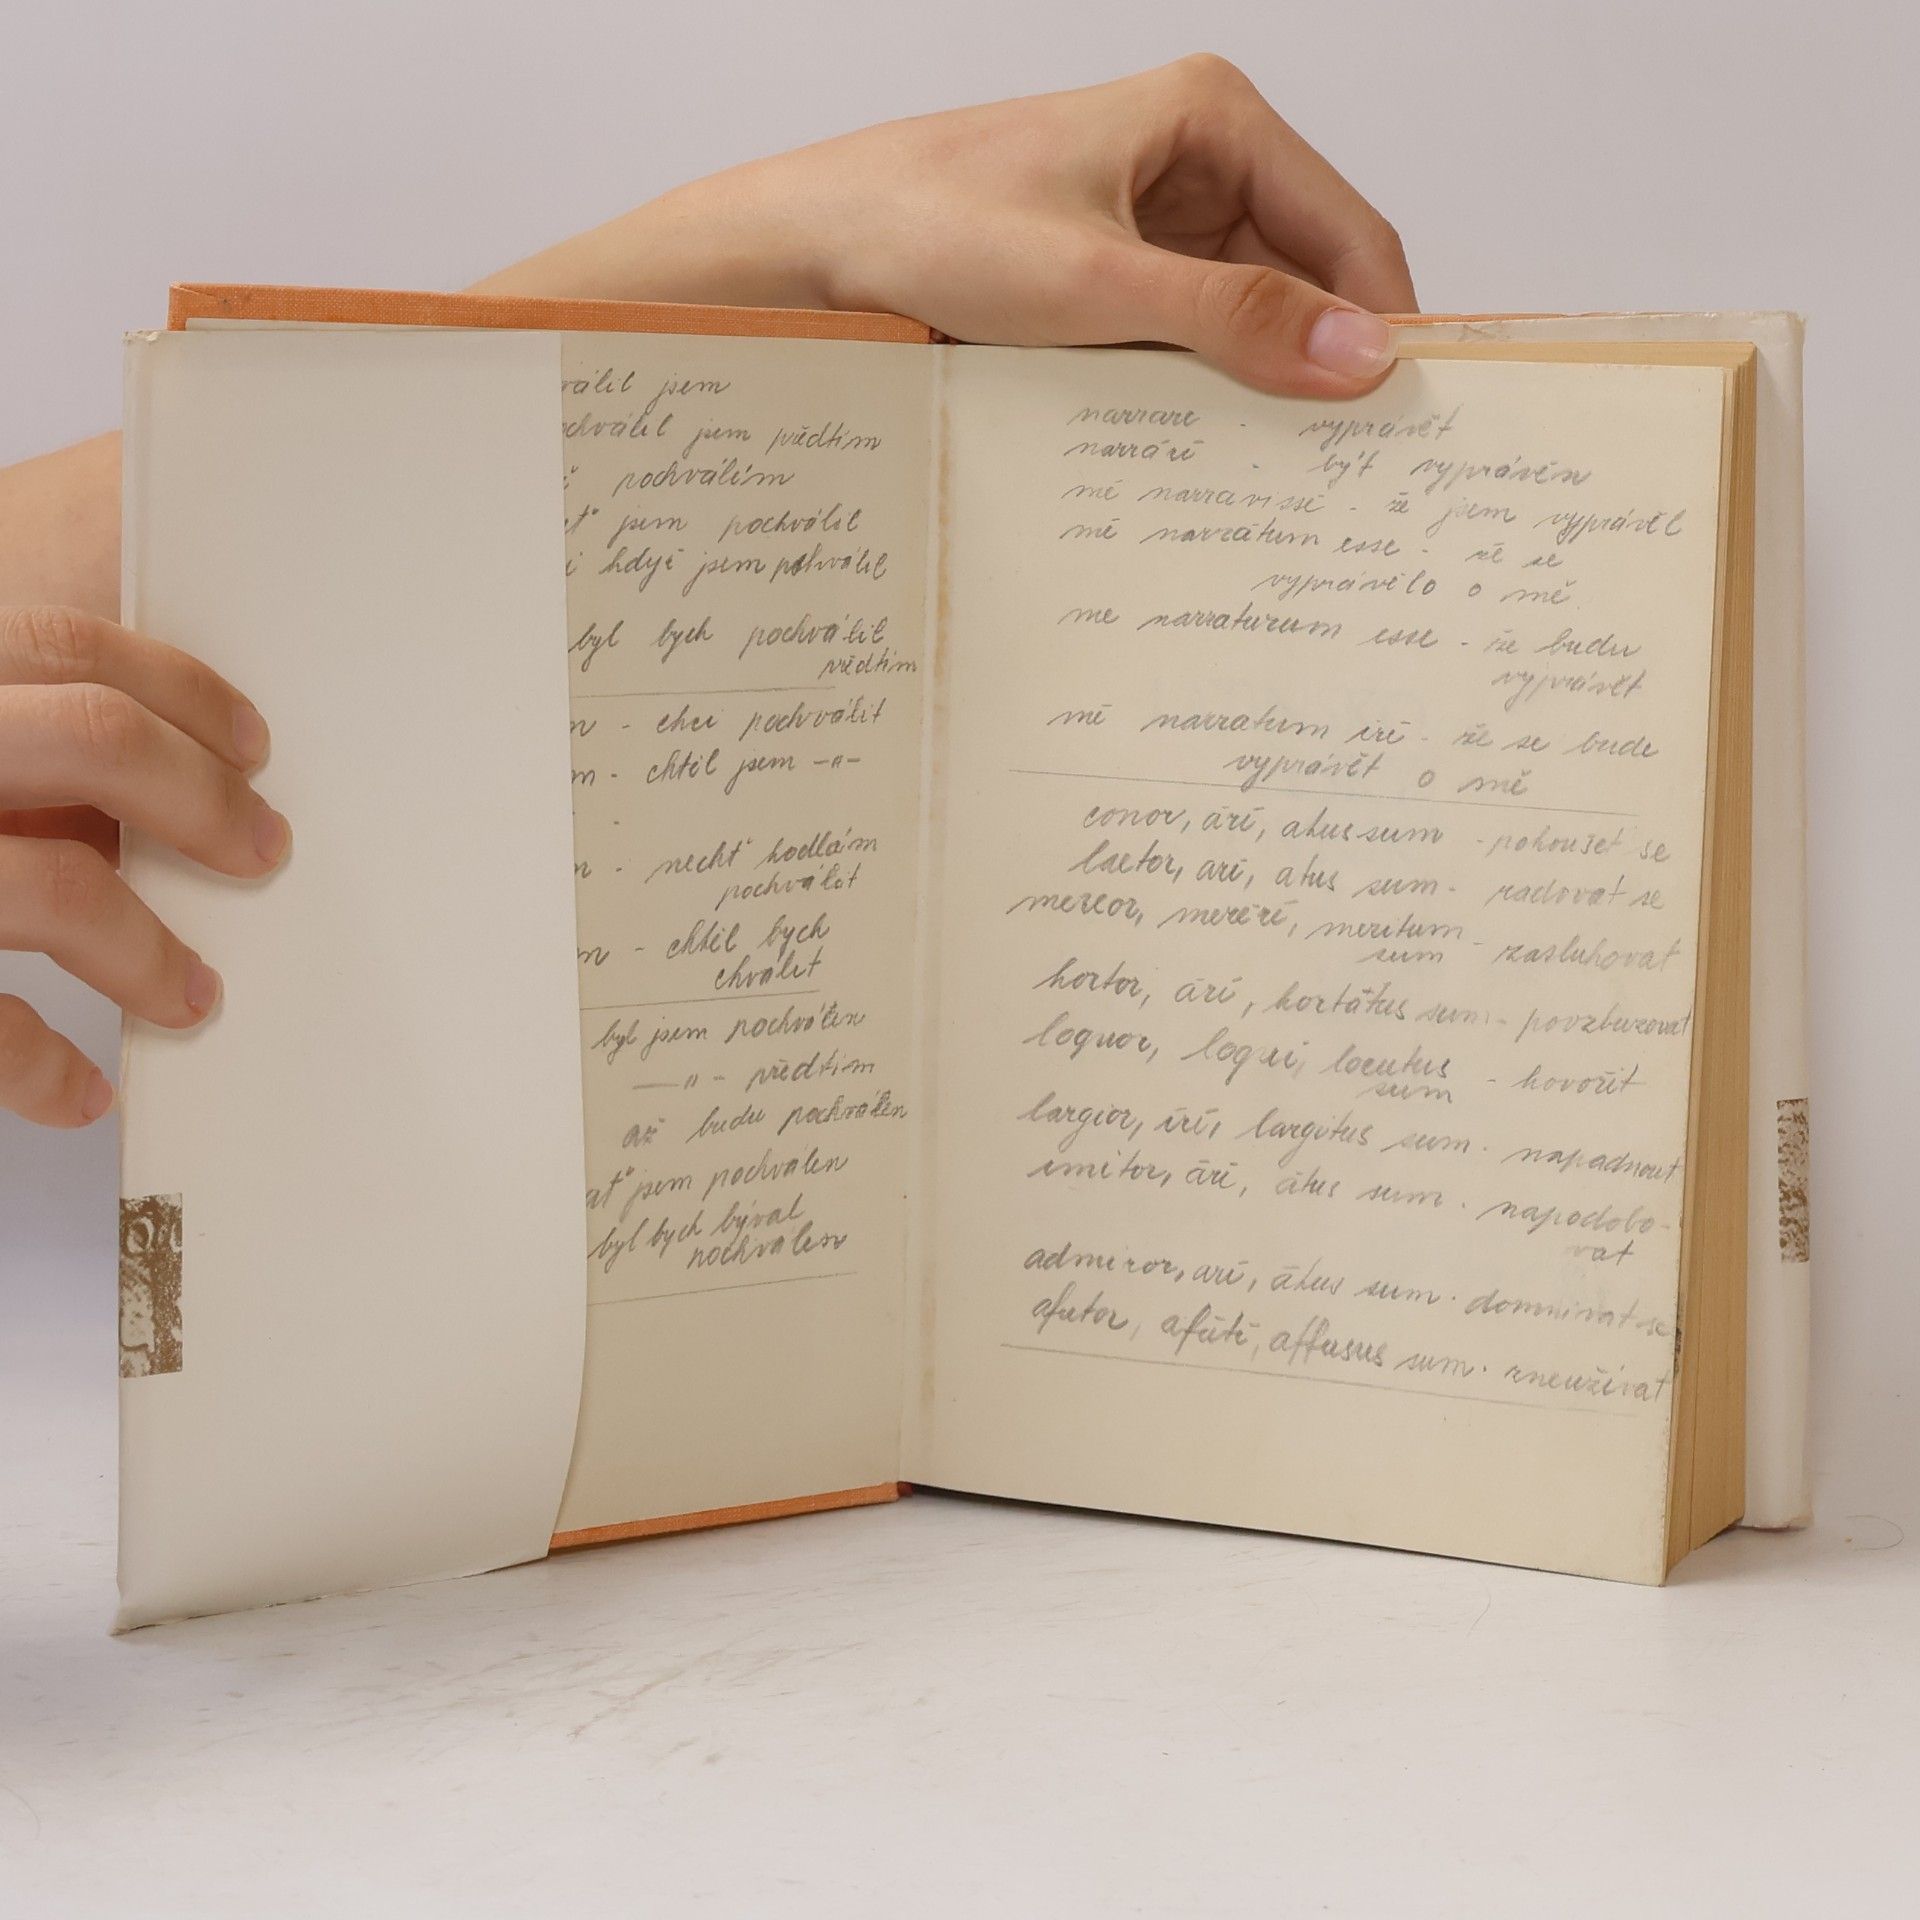 válil jsem
chválil jsem předtím
ž pochválím
ať jsem pochválil
i když jsem pochválil
byl bych pochválil
předtím
m - chci pochválit
m - chtěl jsem -"-
-
m - nechť hodlám
pochválit
m - chtěl bych
chválit
byl jsem pochválen
-"- předtím
až budu pochválen
ať jsem pochválen
byl bych býval
pochválen
narrare - vyprávět
narrārī - být vyprávěn
mē narravisse - že jsem vyprávěl
mē narrātum esse - že se
vyprávělo o mě
me narraturum esse - že budu
vyprávět
mē narratum irī - že se bude
vyprávět o mě
conor, ārī, atus sum - pokoušet se
laetor, arī, atus sum - radovat se
mereor, merērī, meritum
sum - zasluhovat
hortor, ārī, hortātus sum - povzbuzovat
loquor, loqui, locutus
sum - hovořit
largior, īrī, largitus sum - napadnout
imitor, ārī, ātus sum - napodobo-
vat
admiror, arī, ātus sum - domnívat se
afutor, afūtī, affusus sum - zneužívat